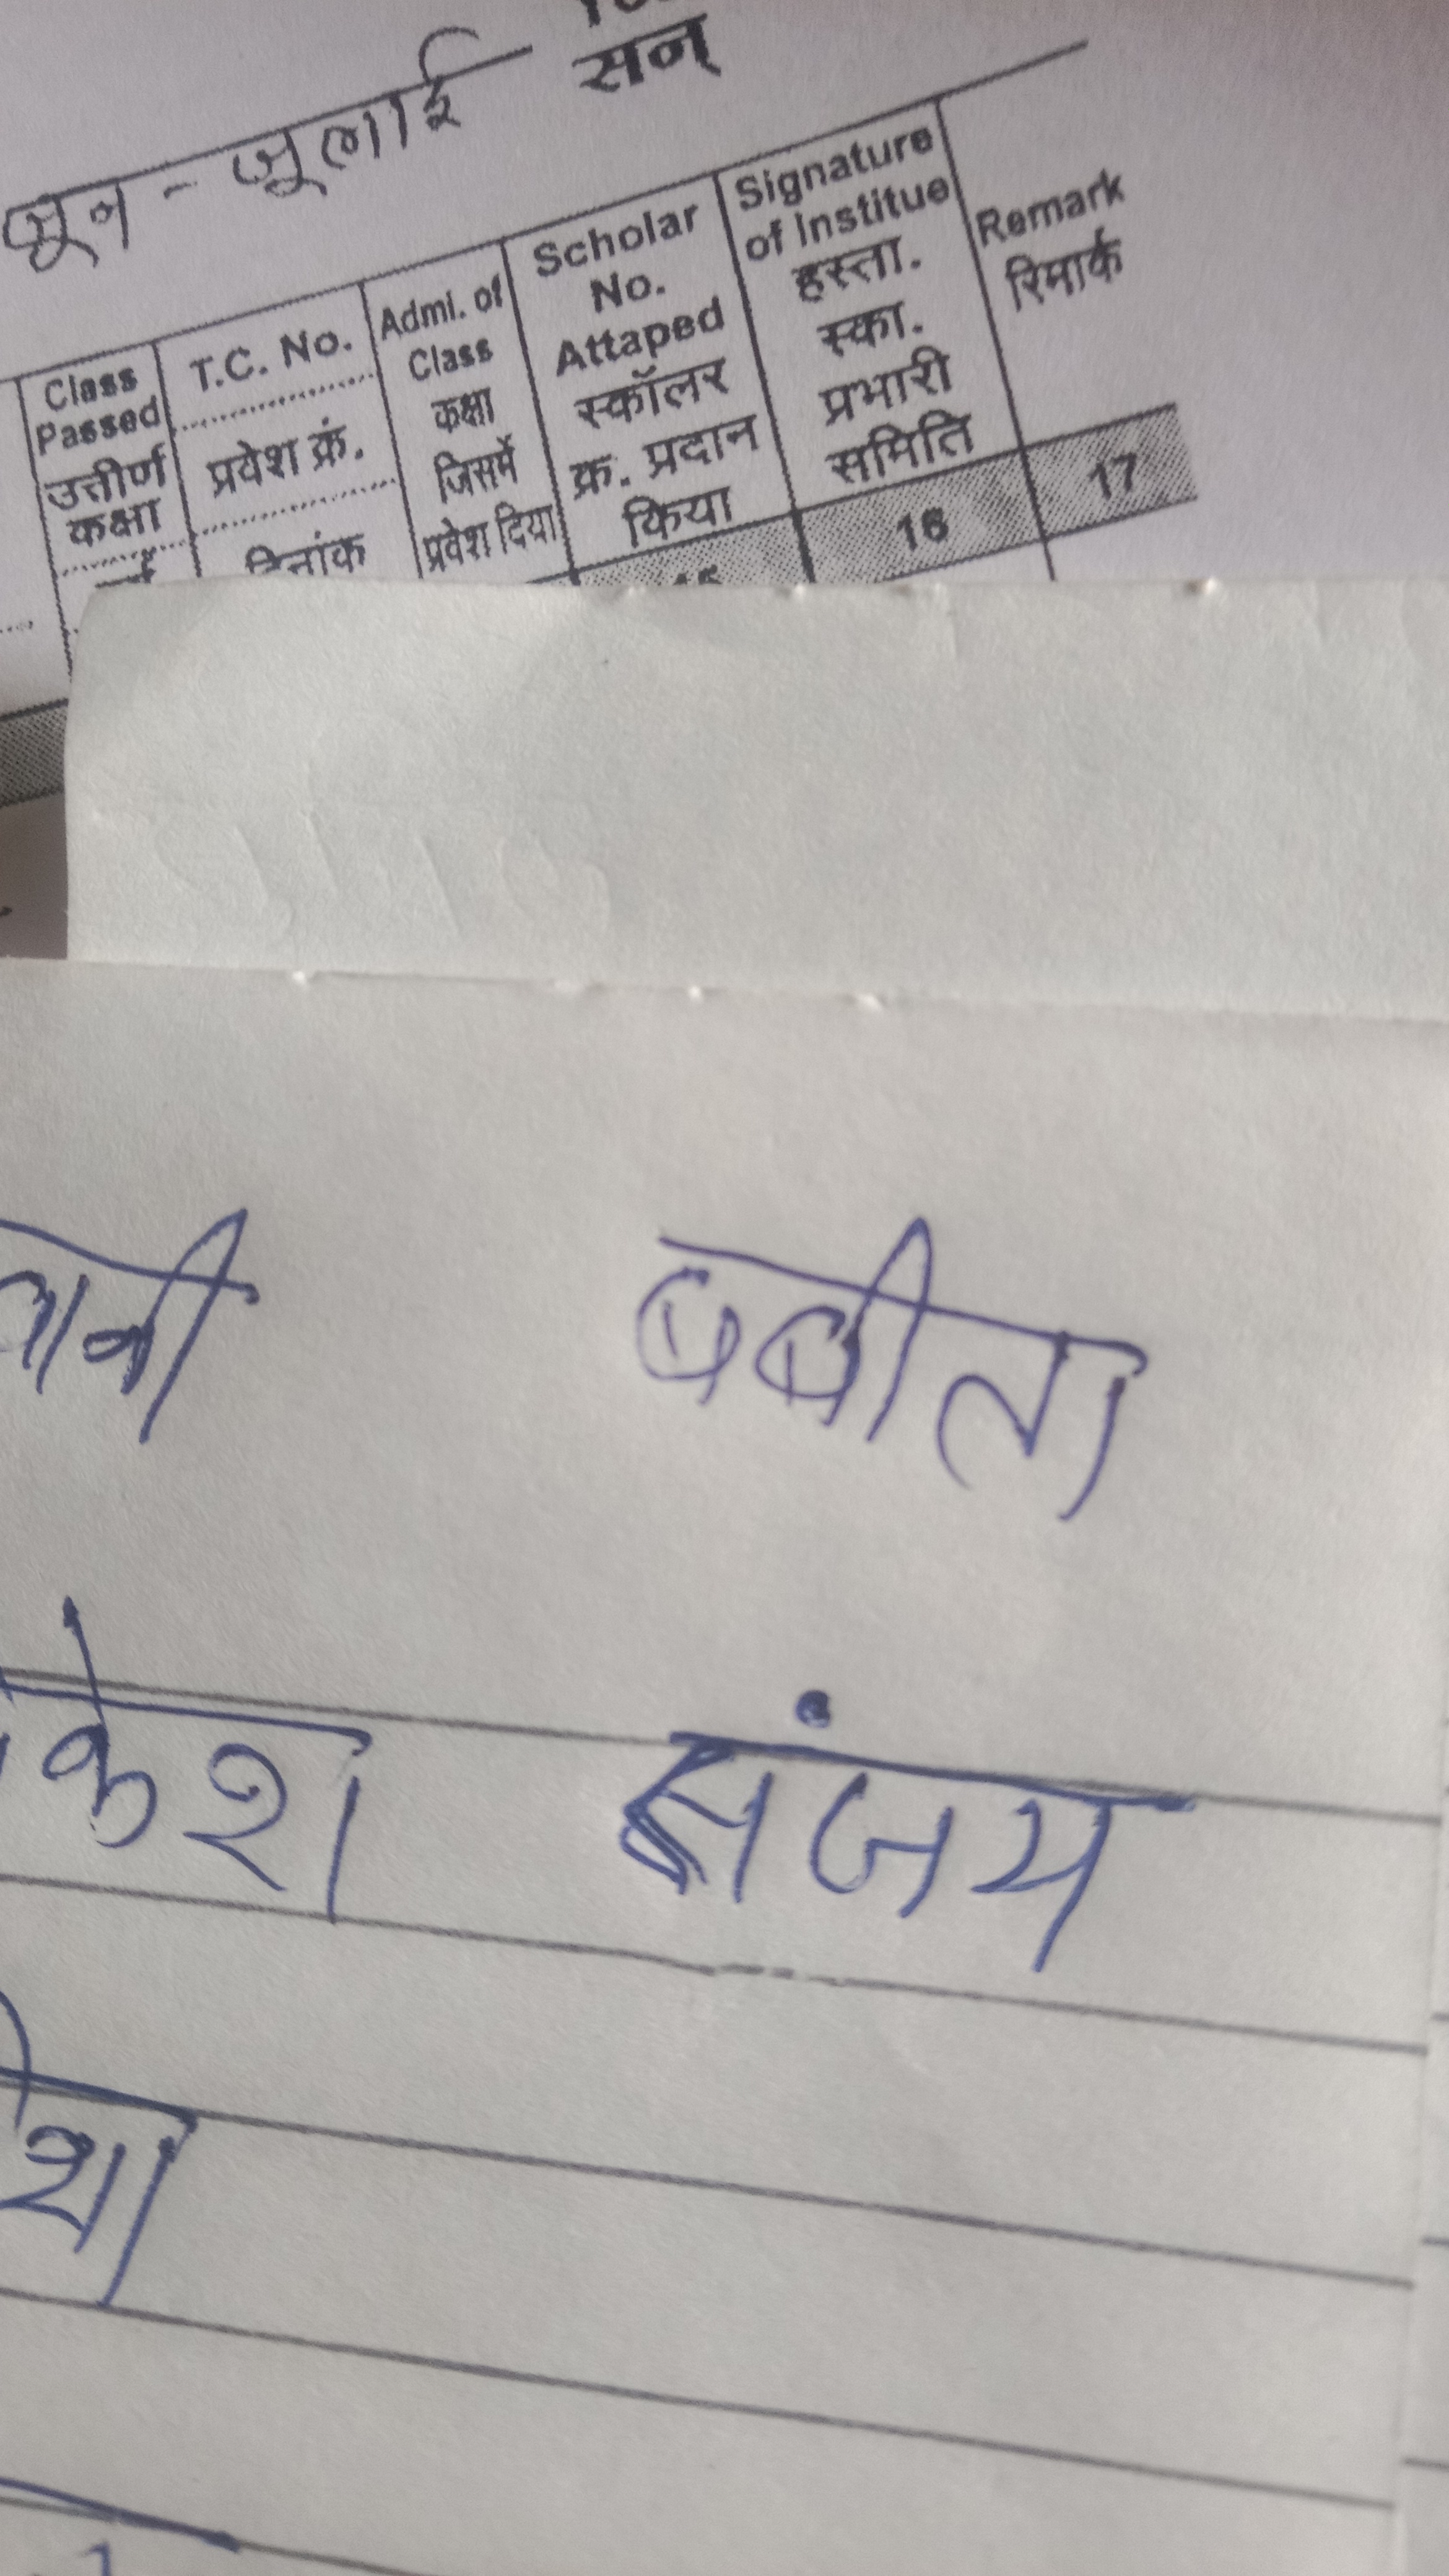 सन्
जून - जूलाई
Class Passed उत्तीर्ण कक्षा
T.C. No. प्रवेश क्रं. दिनांक
Admi. of Class कक्षा जिसमें प्रवेश दिया
Scholar No. Attaped स्कॉलर क्र. प्रदान किया
Signature of Institue हस्ता. स्का. प्रभारी समिति
Remark रिमार्क
15 16 17
बबीता
केश संजय